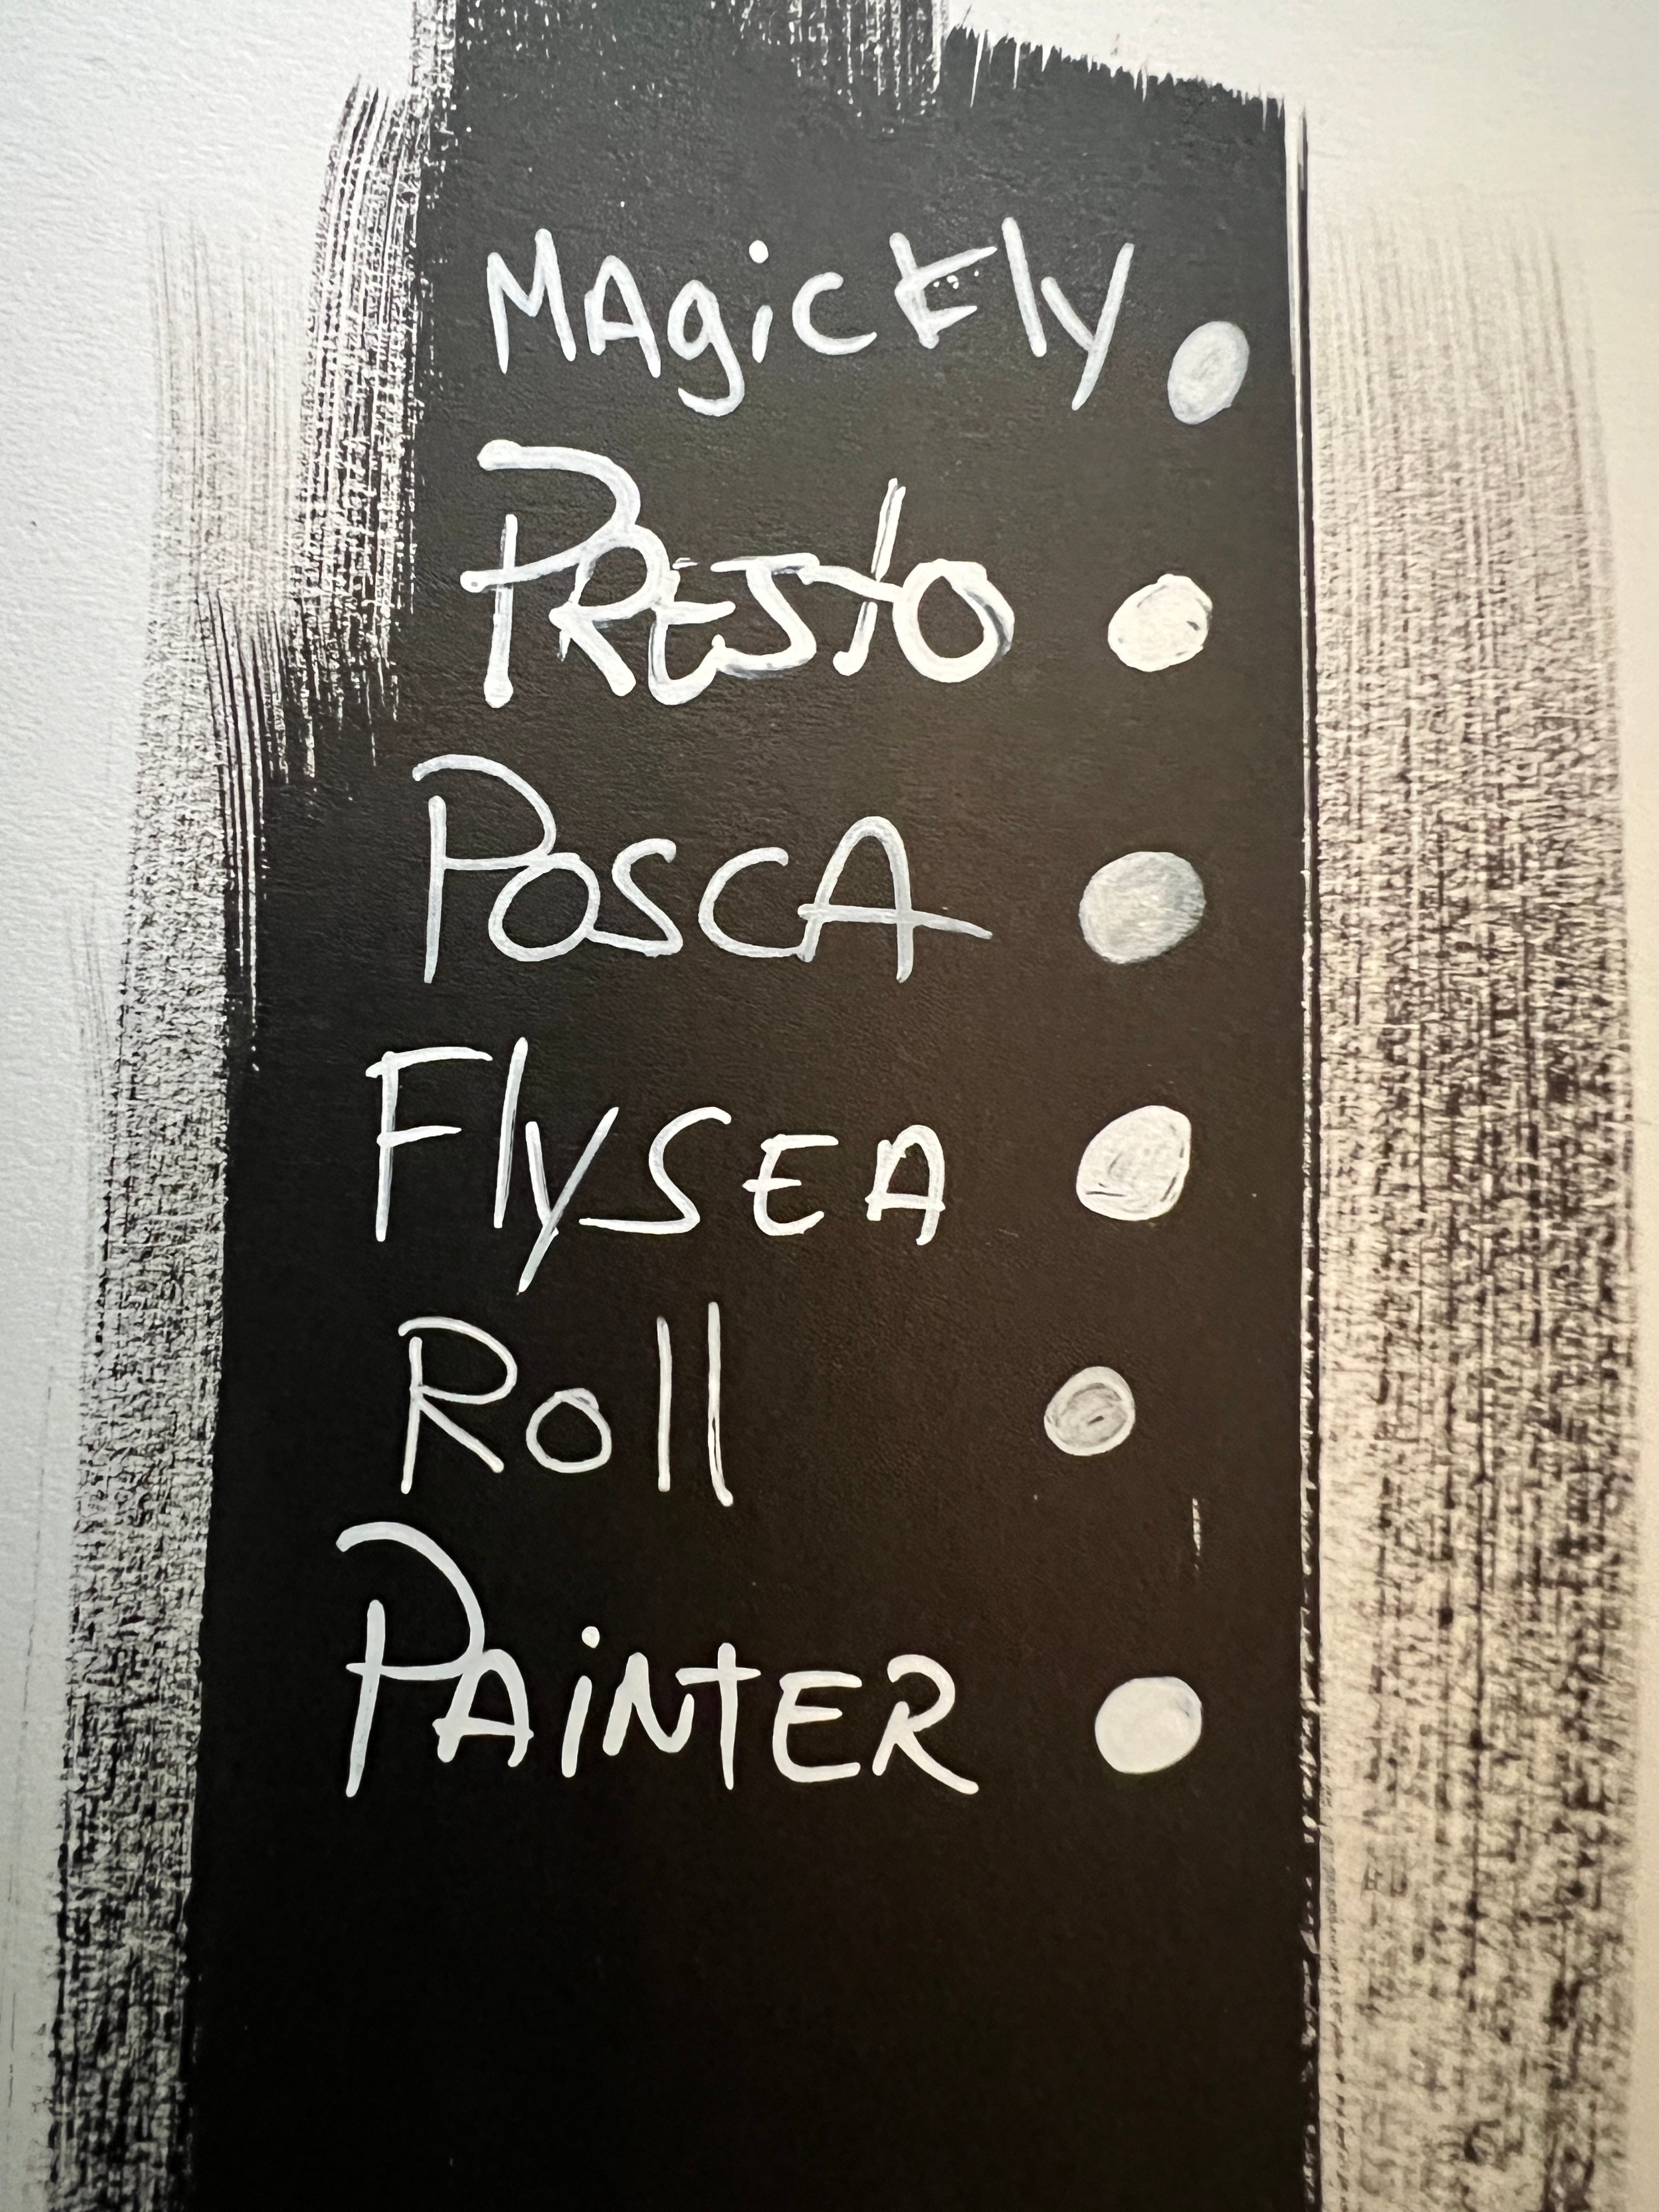 MAgicFly
PRESTO
POSCA
FlySEA
Roll
PAiNTER